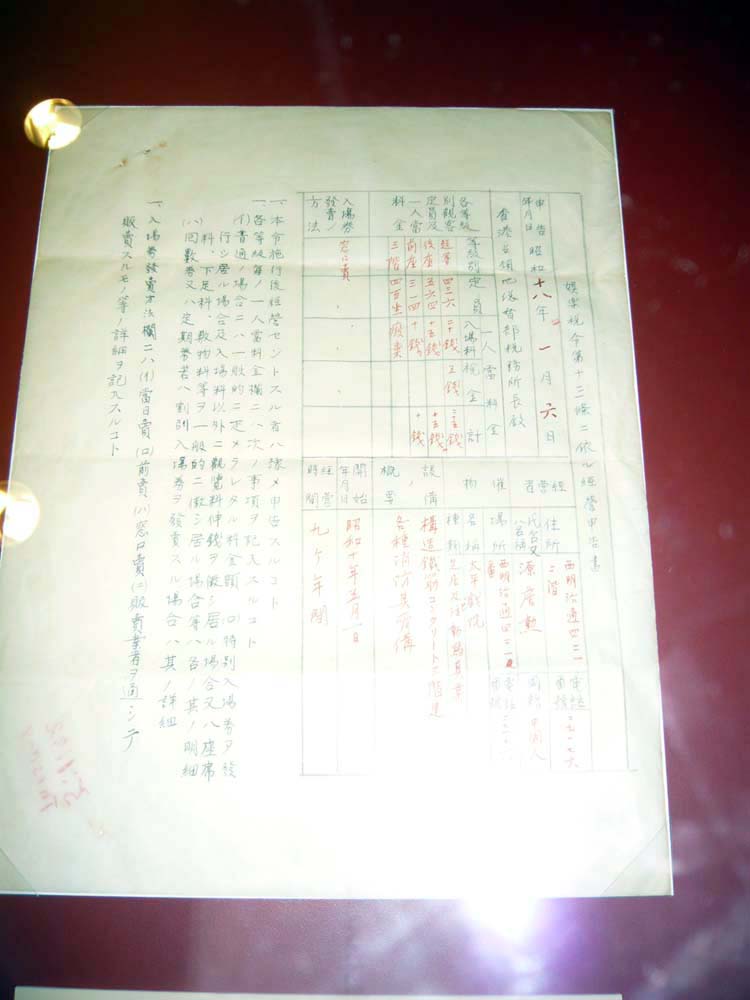 娯楽税令第十三條ニ依ル經營申告書
申告年月日 昭和十八年 一月 六日
香港占領地総督部税務所長殿
經営者
住所 西明治通四二一 二階
電話番號
氏名又ハ名稱 源詹勲
國籍 中國人
催物
場所 西明治通四二一
電話番號
名稱 太平戯院
種類 芝居及活動寫真業
設備ノ概要
構造鐵筋コンクリート三階建
各種消防具完備
開始年月日 昭和十年五月一日
經営時間 九ケ年間
各等級別観客定員及一人當料金
等級別 定員 一人當料金
入場料 税金 計
超等 四三六 二十銭 五銭 二五銭
後座 五六四 十五銭 十五銭
前座 三一四 十銭 十銭
三階 四百生 廢業
入場券發賣ノ方法 窓口賣
一、本令施行後經営セントスル者ハ豫メ申告スルコト
一、各等級毎ノ一人當料金欄ニハ次ノ事項ヲ記入スルコト
(イ)普通ノ場合ニハ一般的ニ定メラレタル料金額 (ロ)特別入場券ヲ發
行シ居ル場合及入場料以外ニ観覽料仲銭ヲ徴シ居ル場合又ハ座席
料、下足料、敷物料等ヲ一般的ニ徴シ居ル場合等ハ各ノ其ノ明細
(ハ)回數券又ハ定期券若ハ割引入場券ヲ發賣スル場合ハ其ノ詳細
一、入場券發賣方法欄ニハ(イ)當日賣(ロ)前賣(ハ)窓口賣(ニ)販賣業者ヲ通シテ
販賣スルモノ等ノ詳細ヲ記入スルコト